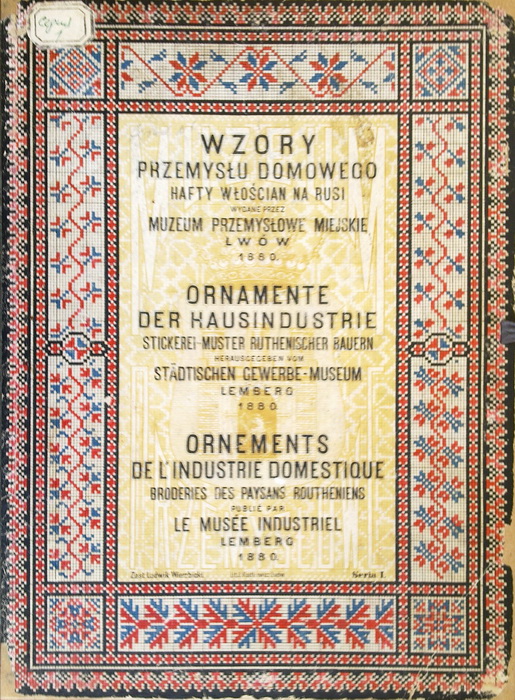 Серия
1
WZORY
PRZEMYSŁU DOMOWEGO
HAFTY WŁOŚCIAN NA RUSI
WYDANE PRZEZ
MUZEUM PRZEMYSŁOWE MIEJSKIE
LWÓW
1880.
ORNAMENTE
DER HAUSINDUSTRIE
STICKEREI-MUSTER RUTHENISCHER BAUERN
HERAUSGEGEBEN VOM
STÄDTISCHEN GEWERBE-MUSEUM
LEMBERG
1880.
ORNEMENTS
DE L'INDUSTRIE DOMESTIQUE
BRODERIES DES PAYSANS ROUTHENIENS
PUBLIÉ PAR
LE MUSÉE INDUSTRIEL
LEMBERG
1880.
Zest. Ludwik Wierzbicki
Seria I.